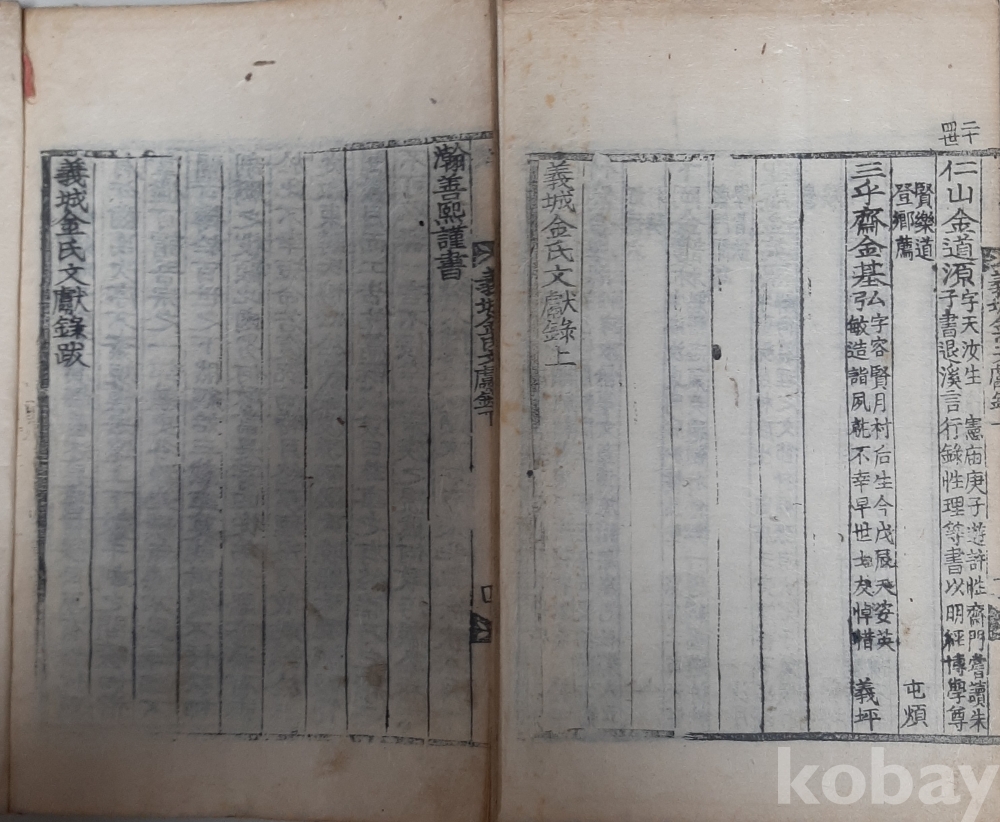 二十
四世
仁山金道源 字天汝生 憲庙庚子遊許性齋門嘗讀朱
子書退溪言行錄性理等書以明經博學尊
賢樂道
登鄉薦 屯煩
三乎齋金基弘 字容賢月村后生今戊辰天姿英
敏造詣夙就不幸早世士友悼惜 義坪
義城金氏文獻錄上
瀚善熙謹書
義城金氏文獻錄跋
義城金氏文獻錄下
四
kobay